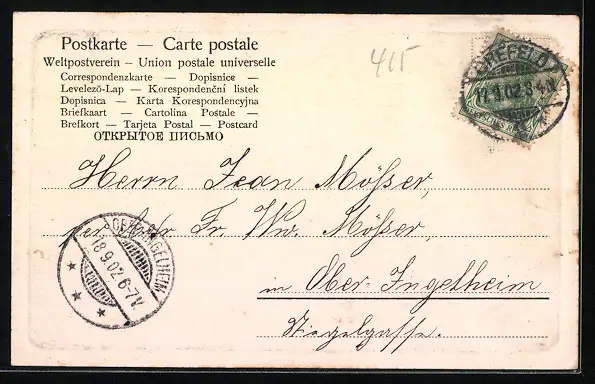 Postkarte — Carte postale
Weltpostverein — Union postale universelle
Correspondenzkarte — Dopisnice —
Levelező-Lap — Korespondenční listek
Dopisnica — Karta Korespondencyjna
Briefkaart — Cartolina Postale —
Brefkort — Tarjeta Postal — Postcard
ОТКРЫТОЕ ПИСЬМО
415
CREFELD
17.9.02
Herrn Jean Mösser,
per Adr. Fr. Ww. Mösser,
in Ober-Ingelheim
Stiegelgasse.
OBER-INGELHEIM
18.9.02.6-7V.